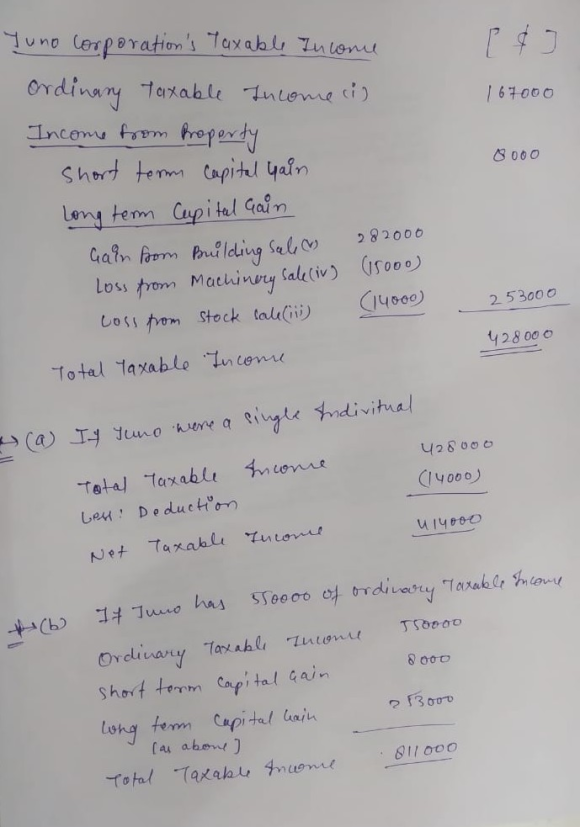 Juno Corporation's Taxable Income [ $ ]
Ordinary Taxable Income (i) 167000
Income from Property
Short term Capital Gain 8000
Long term Capital Gain
Gain from Building Sale(v) 282000
Loss from Machinery Sale(iv) (15000)
Loss from Stock Sale(iii) (14000) 253000
Total Taxable Income 428000
(a) If Juno were a single Indivitual
Total Taxable Income 428000
Less: Deduction (14000)
Net Taxable Income 414000
(b) If Juno has 550000 of ordinary Taxable Income
Ordinary Taxable Income 550000
Short term Capital Gain 8000
Long term Capital Gain 253000
[as above]
Total Taxable Income 811000